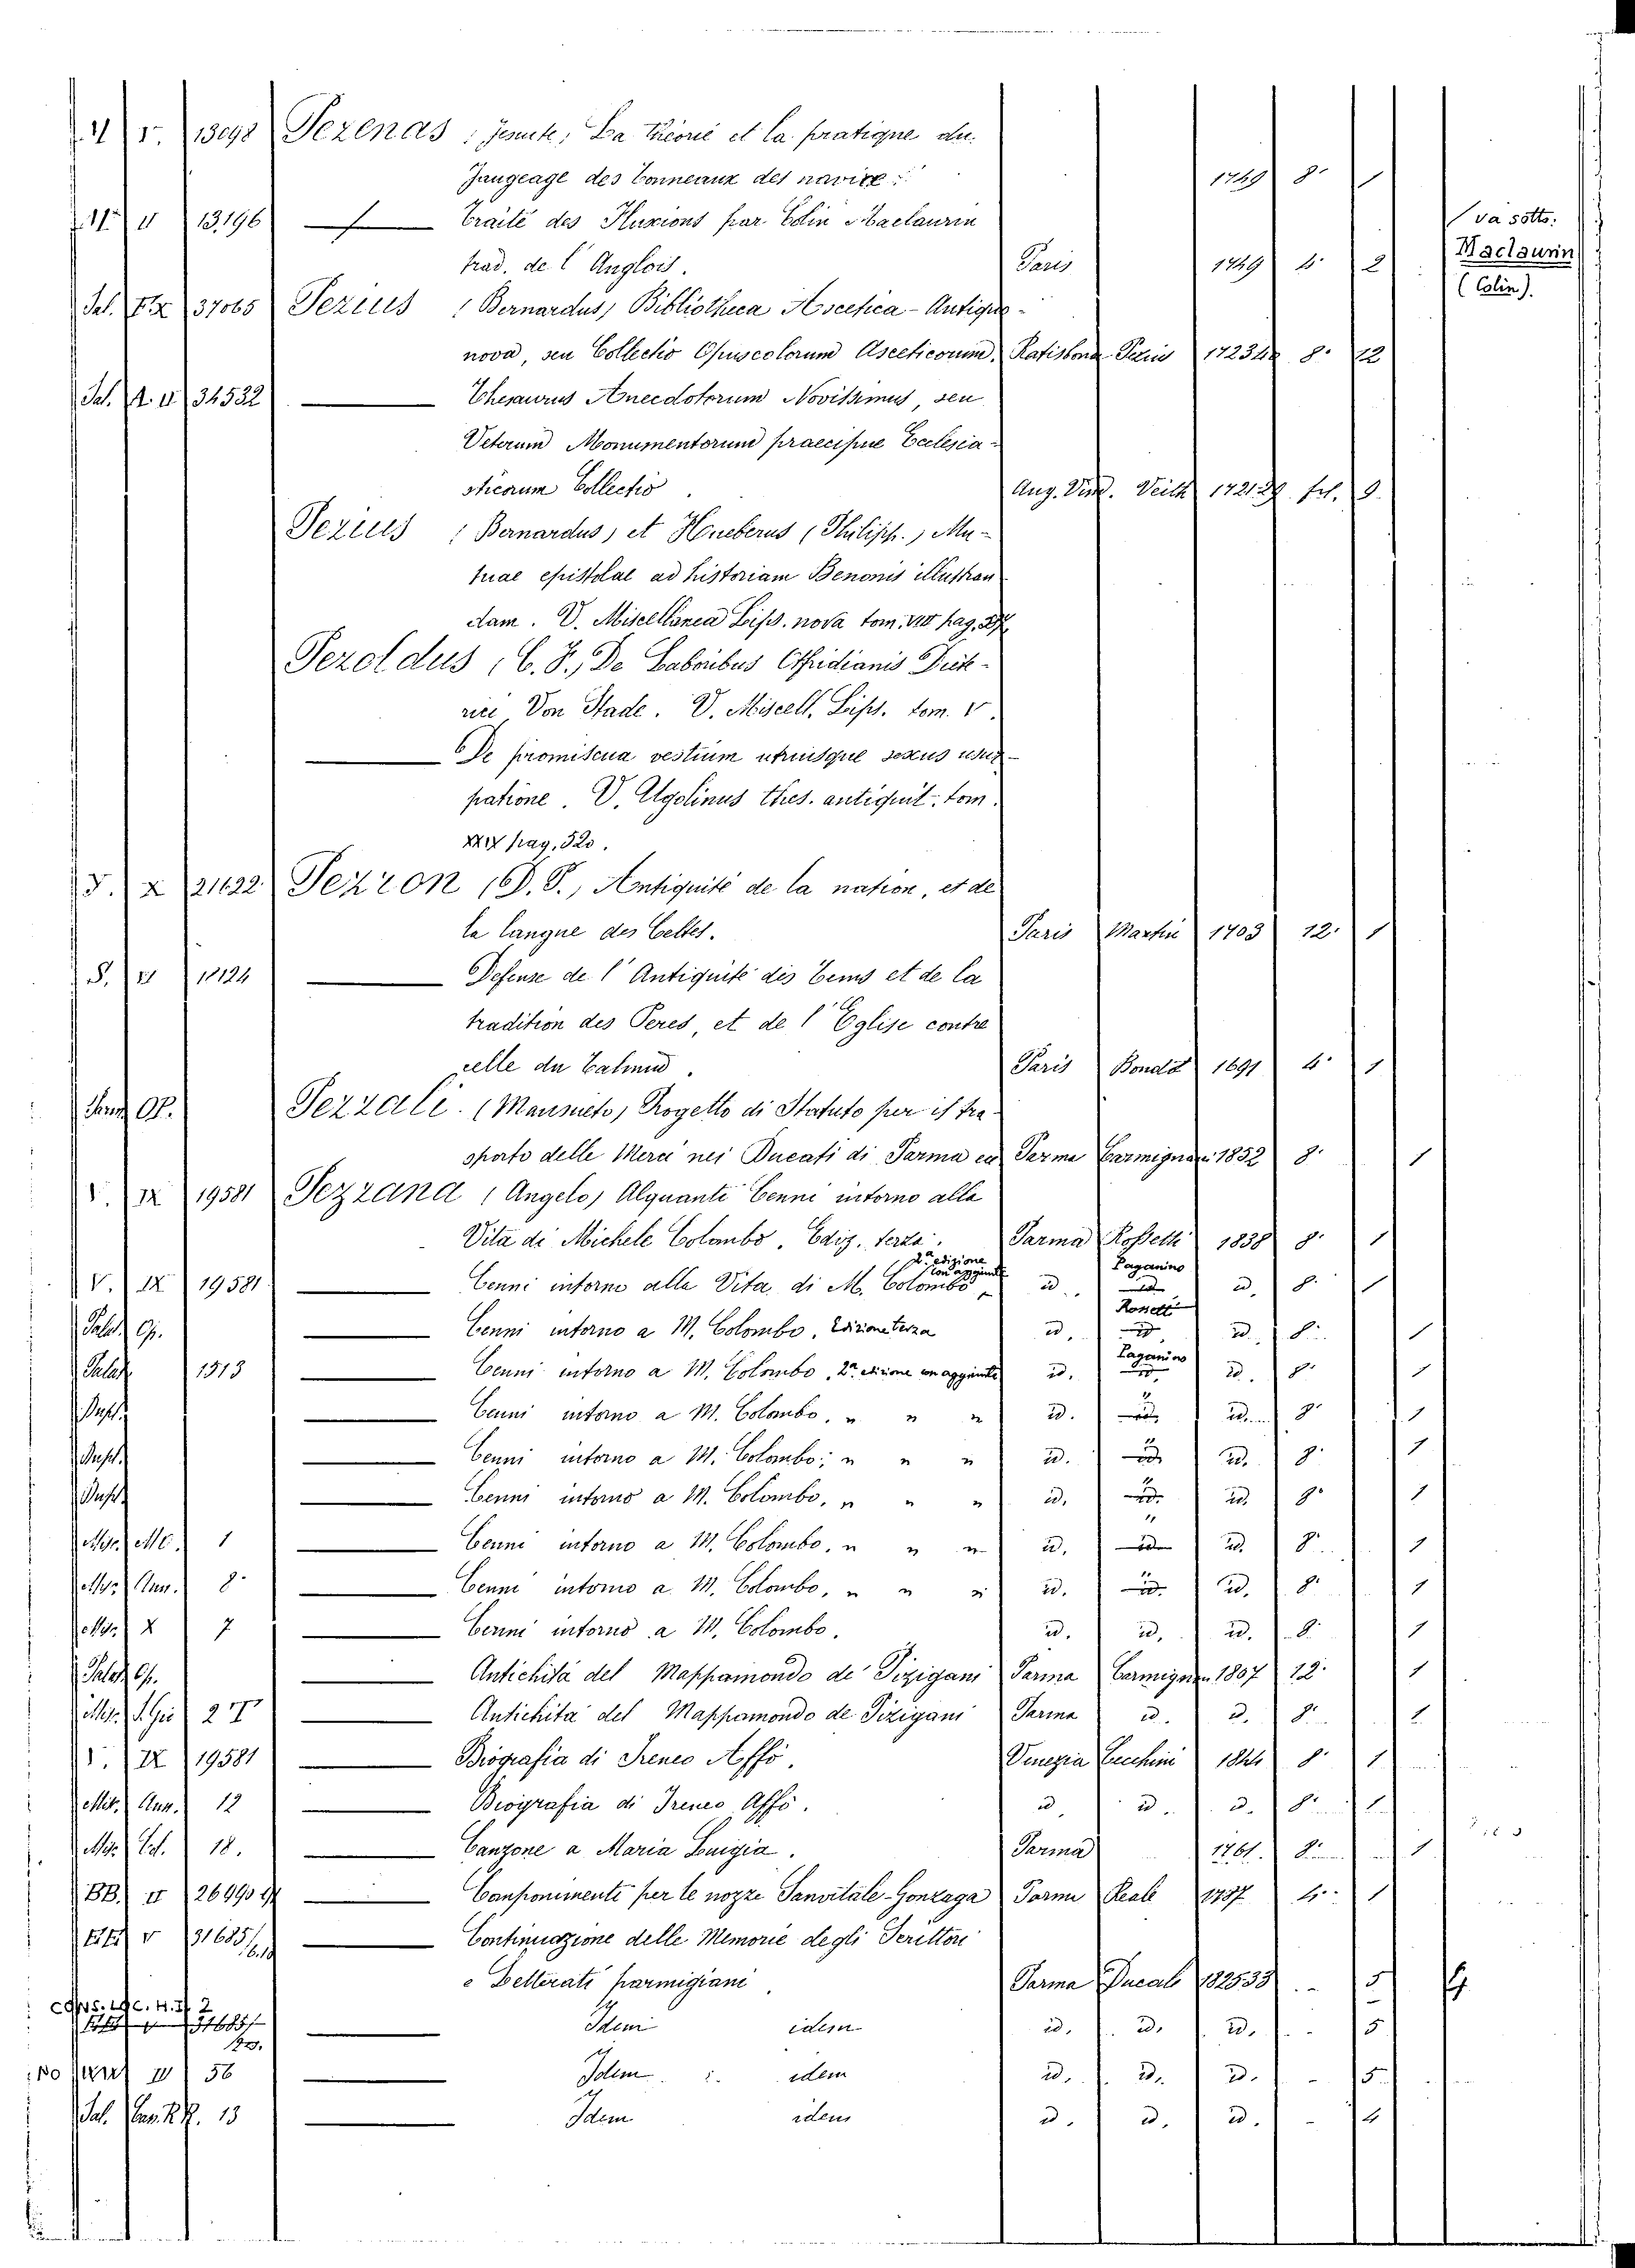 13098 Pezenas (Jesuite) La théorie et la pratique du
Jaugeage des tonneaux des navire. 1749 8° 1
II 13196 Traité des Fluxions par Colin Maclaurin va sotto:
trad. de l'Anglois. Paris 1749 4° 2 Maclaurin
(Colin).
Pal. 37065 Pezius (Bernardus) Bibliotheca Ascetica-Antiquo-
nova, seu Collectio Opuscolorum Asceticorum. 8° 12
Pal. 34532 Thesaurus Anecdotorum Novissimus, seu
Veterum Monumentorum praecipue Ecclesia-
sticorum Collectio. Aug. Vind. Veith 172129 fol.
Pezius (Bernardus) et Hueberus (Philipp.) Mu-
tuae epistolae ad historiam Benonis illustran
dam. V. Miscellanea Lips. nova tom. VIII pag.
Pezoldus (C. F.) De Laboribus Otfridianis Diete-
rici Von Stade. V. Miscell. Lips. tom. V.
De promiscua vestium utriusque sexus usur-
patione. V. Ugolinus thes. antiquit. tom.
XXIX pag. 520.
X 21622 Pezron (D. P.) Antiquité de la nation, et de
la langue des Celtes. Paris Martin 1703 12° 1
S. Defense de l'Antiquité des tems et de la
tradition des Peres, et de l'Eglise contre
celle du Talmud. Paris Boudot 1691 4° 1
Pezzali (Mansueto) Progetto di Statuto per il tra-
sporto delle Merci nei Ducati di Parma ec Parma Carmignani 1852 8° 1
V. IX 19581 Pezzana (Angelo) Alquanti Cenni intorno alla
Vita di Michele Colombo. Ediz. terza. Parma Rossetti 1838 8° 1
2ª edizione con aggiunte Paganino
V. IX 19581 Cenni intorno alla Vita di M. Colombo id. id. id. 8° 1
Rossetti
Palat. Op. Cenni intorno a M. Colombo. Edizione terza id. id. id. 8° 1
Paganino
Palat. 1513 Cenni intorno a M. Colombo. 2ª edizione con aggiunte id. id. id. 8° 1
Dupl. Cenni intorno a M. Colombo. " " " id. " id. 8° 1
Dupl. Cenni intorno a M. Colombo; " " " id. " id. 8° 1
Dupl. Cenni intorno a M. Colombo. " " " id. " id. 8° 1
1 Cenni intorno a M. Colombo. " " " id. " id. 8° 1
8 Cenni intorno a M. Colombo, " " " id. " id. 8° 1
X 7 Cenni intorno a M. Colombo. id. id. id. 8° 1
Palat. Op. Antichità del Mappamondo de' Pizigani Parma Carmignani 1807 12° 1
Antichità del Mappamondo de Pizigani Parma id. id. 8° 1
V. IX 19581 Biografia di Ireneo Affò. Venezia Cecchini 1844 8° 1
12 Biografia di Ireneo Affò. id. id. id. 8° 1
18. Canzone a Maria Luigia. Parma 8° 1
BB. II Componimenti per le nozze Sanvitale-Gonzaga Parma Reale 1787 4° 1
V 31685 Continuazione delle Memorie degli Scrittori
e Letterati parmigiani. Parma Ducale 182533 - 5
Idem idem id. id. id. - 5
56 Idem idem id. id. id. - 5
Pal. 13 Idem idem id. id. id. - 4